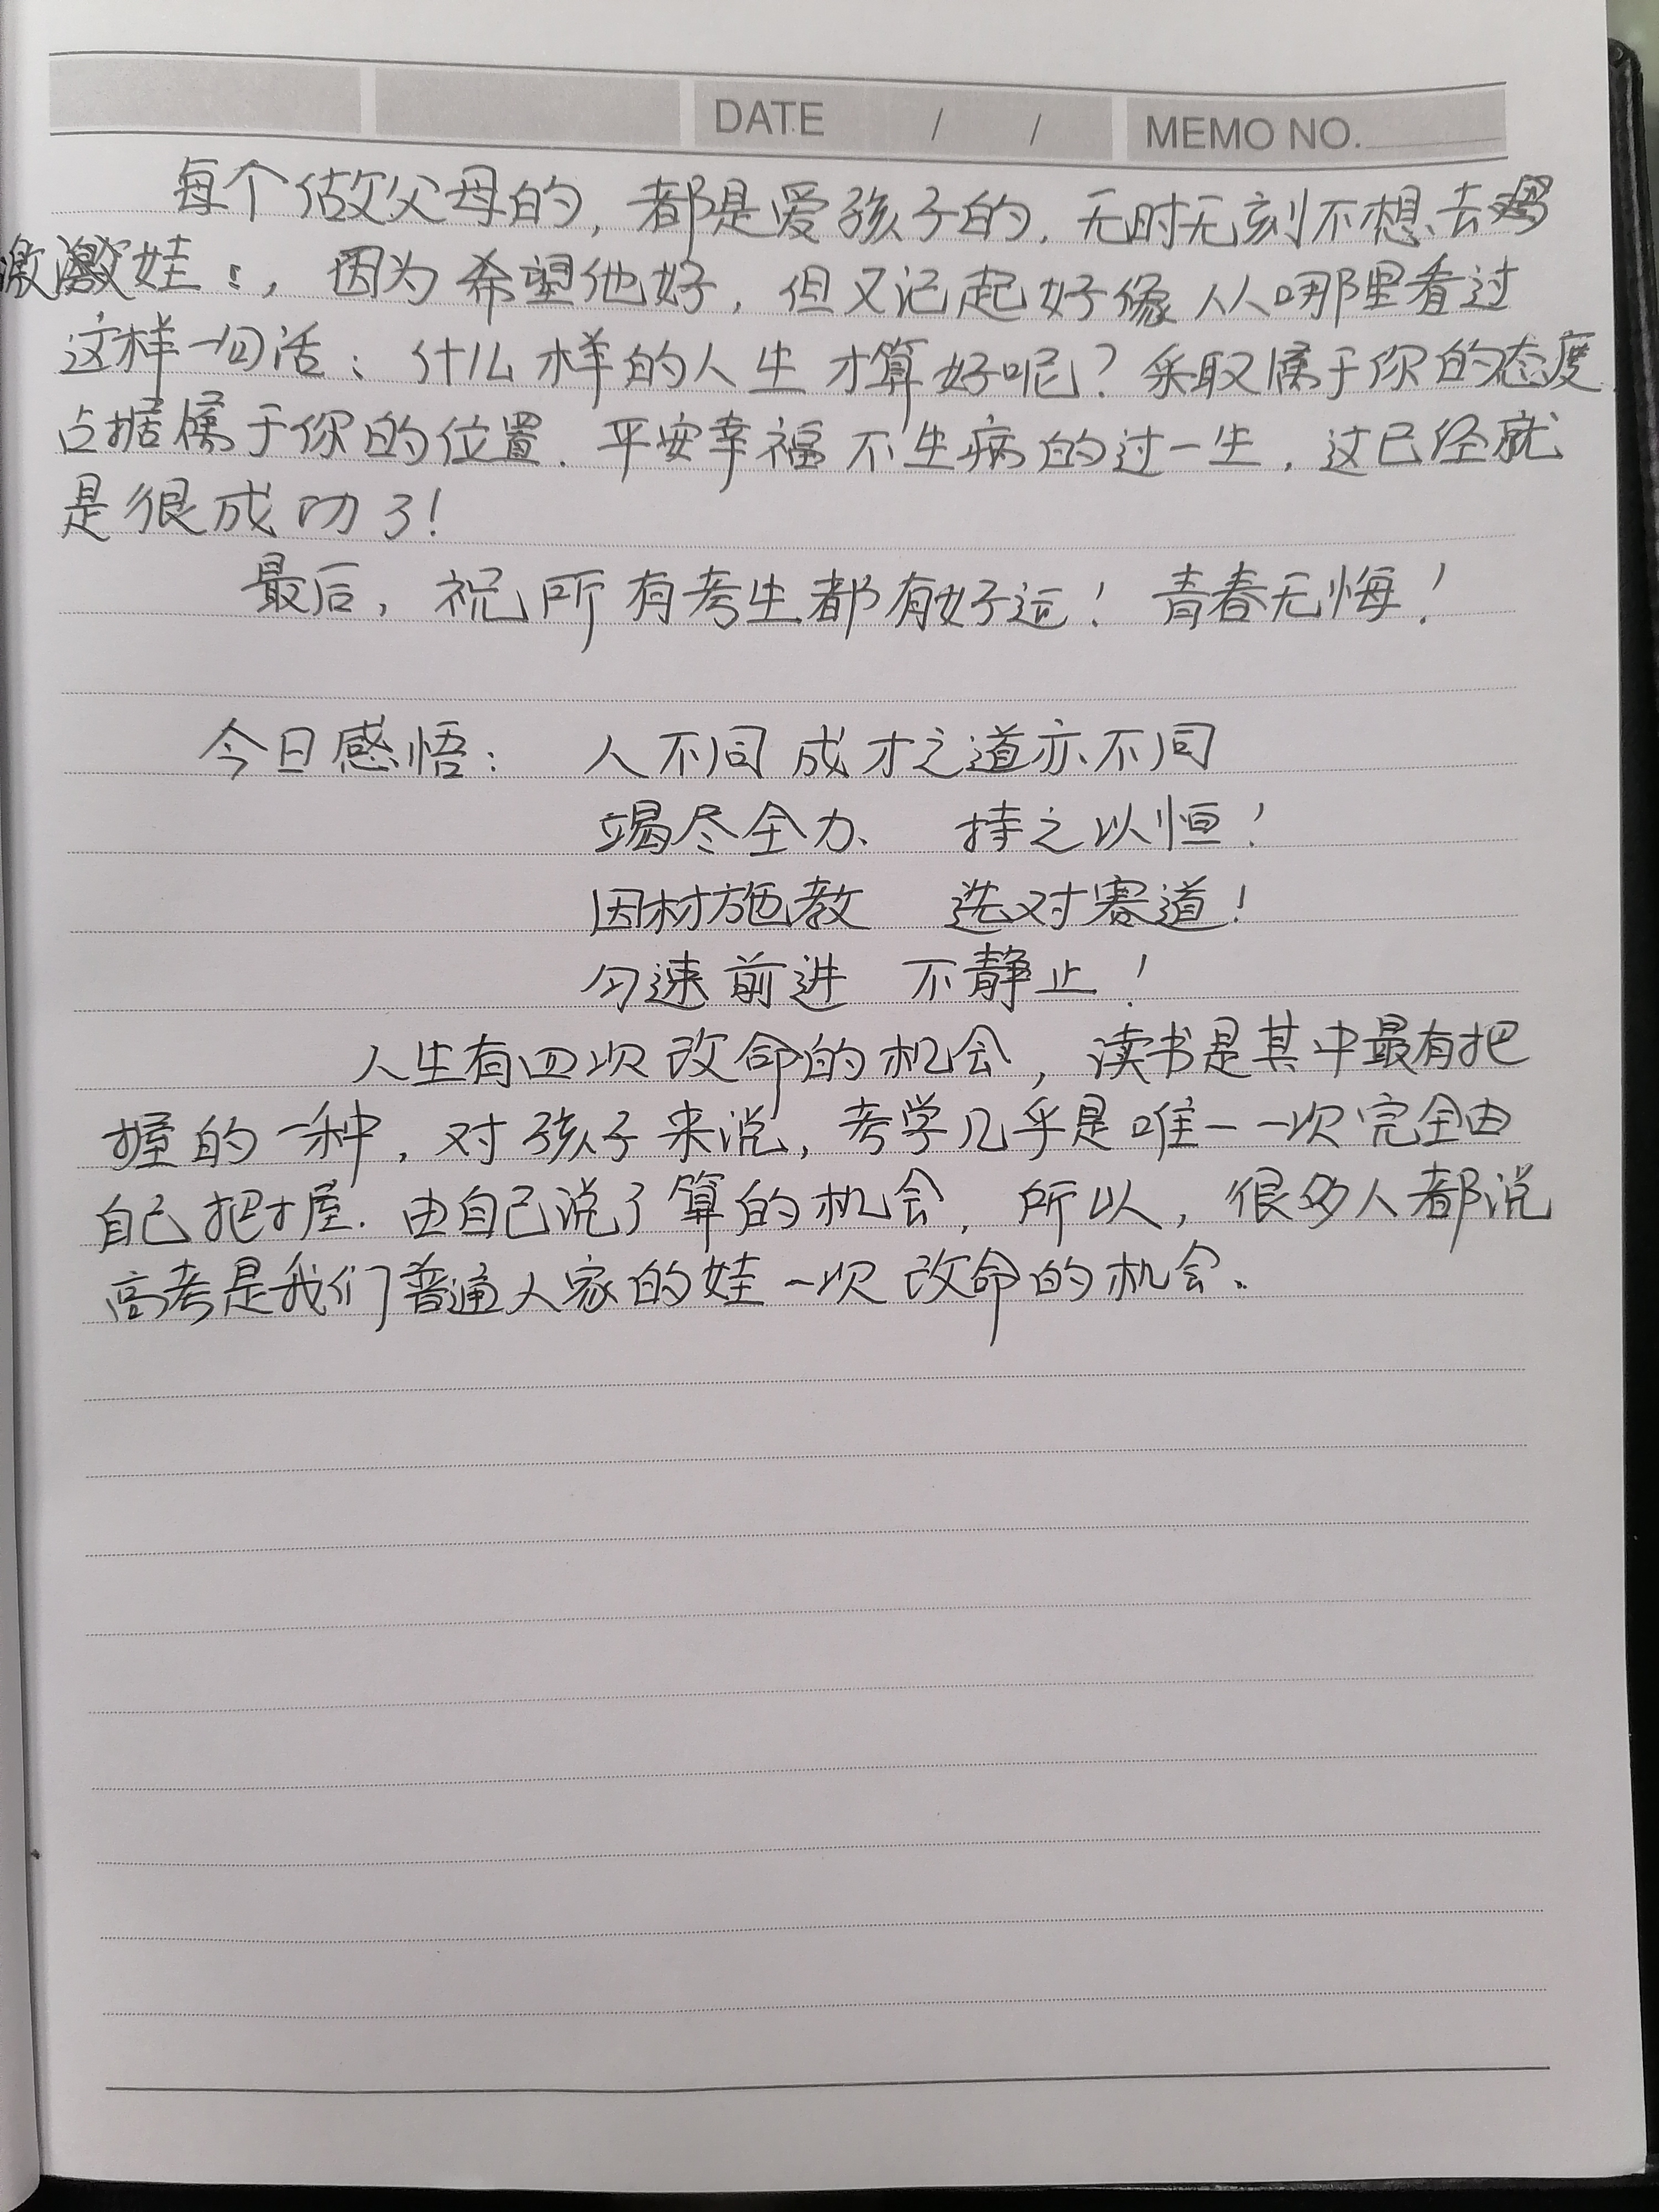 DATE / / MEMO NO.
每个做父母的，都是爱孩子的，无时无刻不想去
激娃，因为希望他好，但又记起好像从哪里看过
这样一句话：什么样的人生才算好呢？采取属于你的态度，
占据属于你的位置．平安幸福不生病的过一生，这已经就
是很成功了！
最后，祝所有考生都有好运！青春无悔！
今日感悟：人不同 成才之道亦不同
竭尽全力、 持之以恒！
因材施教 选对赛道！
匀速前进 不静止！
人生有四次改命的机会，读书是其中最有把
握的一种，对孩子来说，考学几乎是唯一一次完全由
自己把握．由自己说了算的机会，所以，很多人都说
高考是我们普通人家的娃一次改命的机会。